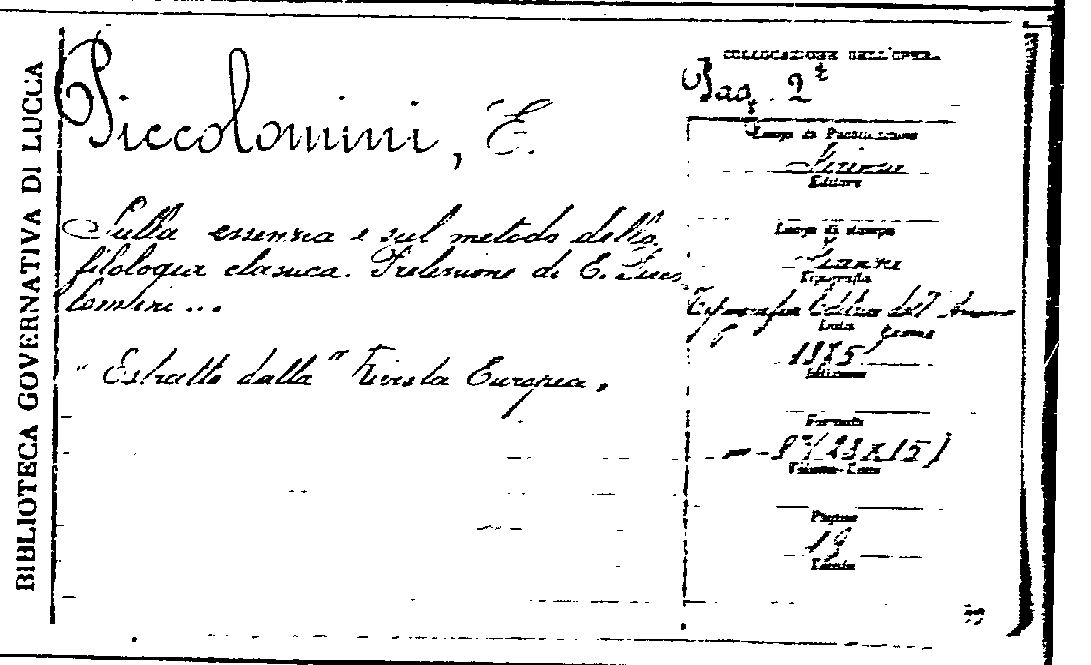 BIBLIOTECA GOVERNATIVA DI LUCCA
Piccolomini, E.
Sulla essenza e sul metodo della
filologia classica. Prelezione di E. Picco
lomini...
"Estratto dalla" Rivista Europea.
COLLOCAZIONE DELL'OPERA
2ª
Luogo di Pubblicazione
Firenze
Editore
Luogo di stampa
Firenze
Tipografia
Tipografia Editrice dell'
Data
1875
Edizione
Formato
8° (23 x 15)
Pagine
19